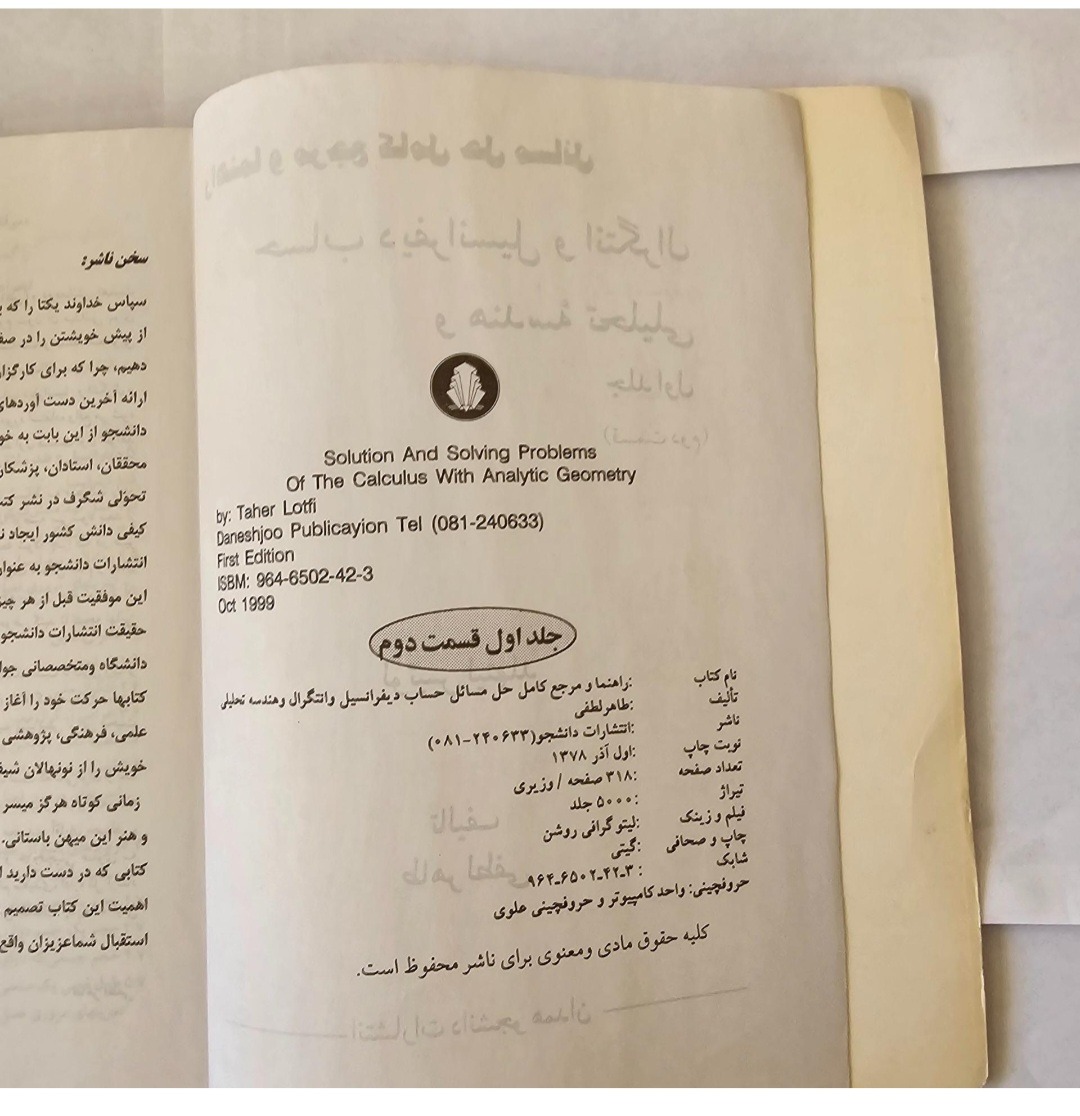 Solution And Solving Problems
Of The Calculus With Analytic Geometry
by: Taher Lotfi
Daneshjoo Publicayion Tel (081-240633)
First Edition
ISBM: 964-6502-42-3
Oct 1999
جلد اول قسمت دوم
نام کتاب :راهنما و مرجع کامل حل مسائل حساب دیفرانسیل وانتگرال وهندسه تحلیلی
تألیف :طاهرلطفی
ناشر :انتشارات دانشجو(۲۴۰۶۳۳-۰۸۱)
نوبت چاپ :اول آذر ۱۳۷۸
تعداد صفحه :۳۱۸ صفحه / وزیری
تیراژ :۵۰۰۰ جلد
فیلم و زینک :لیتو گرافی روشن
چاپ و صحافی :گیتی
شابک : ۳-۴۲-۶۵۰۲-۹۶۴
حروفچینی: واحد کامپیوتر و حروفچینی علوی
کلیه حقوق مادی ومعنوی برای ناشر محفوظ است.
سخن ناشر:
سپاس خداوند یکتا را که
از پیش خویشتن را در
دهیم، چرا که برای
ارائه آخرین دست آوردهای
دانشجو از این بابت به
محققان، استادان، پزشکان
تحولی شگرف در نشر
کیفی دانش کشور ایجاد
انتشارات دانشجو به عنوان
این موفقیت قبل از هر
حقیقت انتشارات دانشجو
دانشگاه ومتخصصانی
کتابها حرکت خود را آغاز
علمی، فرهنگی، پژوهشی
خویش را از نونهالان
زمانی کوتاه هرگز میسر
و هنر این میهن باستانی.
کتابی که در دست دارید
اهمیت این کتاب تصمیم
استقبال شماعزیزان واقع